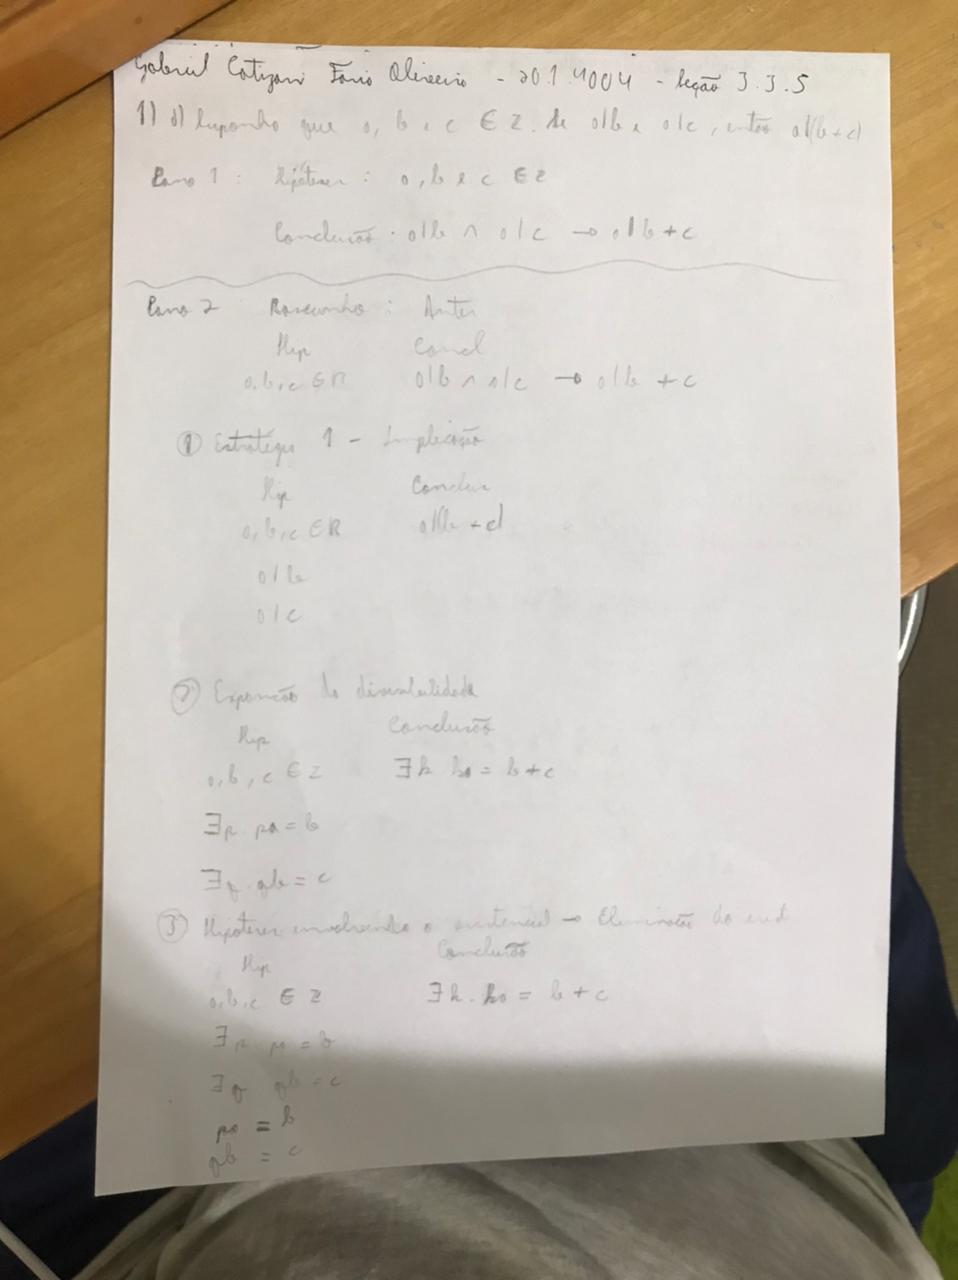 Gabriel Fario Oliveira - 20.1.4004 - Seção 3.3.5
1) a) Suponha que a, b e c ∈ Z. Se a|b e a|c, então a|(b+c)
Passo 1: Hipóteses: a, b e c ∈ Z
Conclusão: a|b ∧ a|c → a|b+c
Passo 2 Rascunho: Antes
Hip Concl
a, b, c ∈ R a|b ∧ a|c → a|b+c
① Estratégia 1 - Implicação
Hip Conclus
a, b, c ∈ R a|(b+c)
a|b
a|c
② Expansão da divisibilidade
Hip Conclusão
a, b, c ∈ Z ∃k ka = b+c
∃p pa = b
∃q. qb = c
③ Hipóteses envolvendo o existencial → Eliminação do exist
Hip Conclusão
a, b, c ∈ Z ∃k. ka = b+c
∃p pa = b
∃q qb = c
pa = b
qb = c